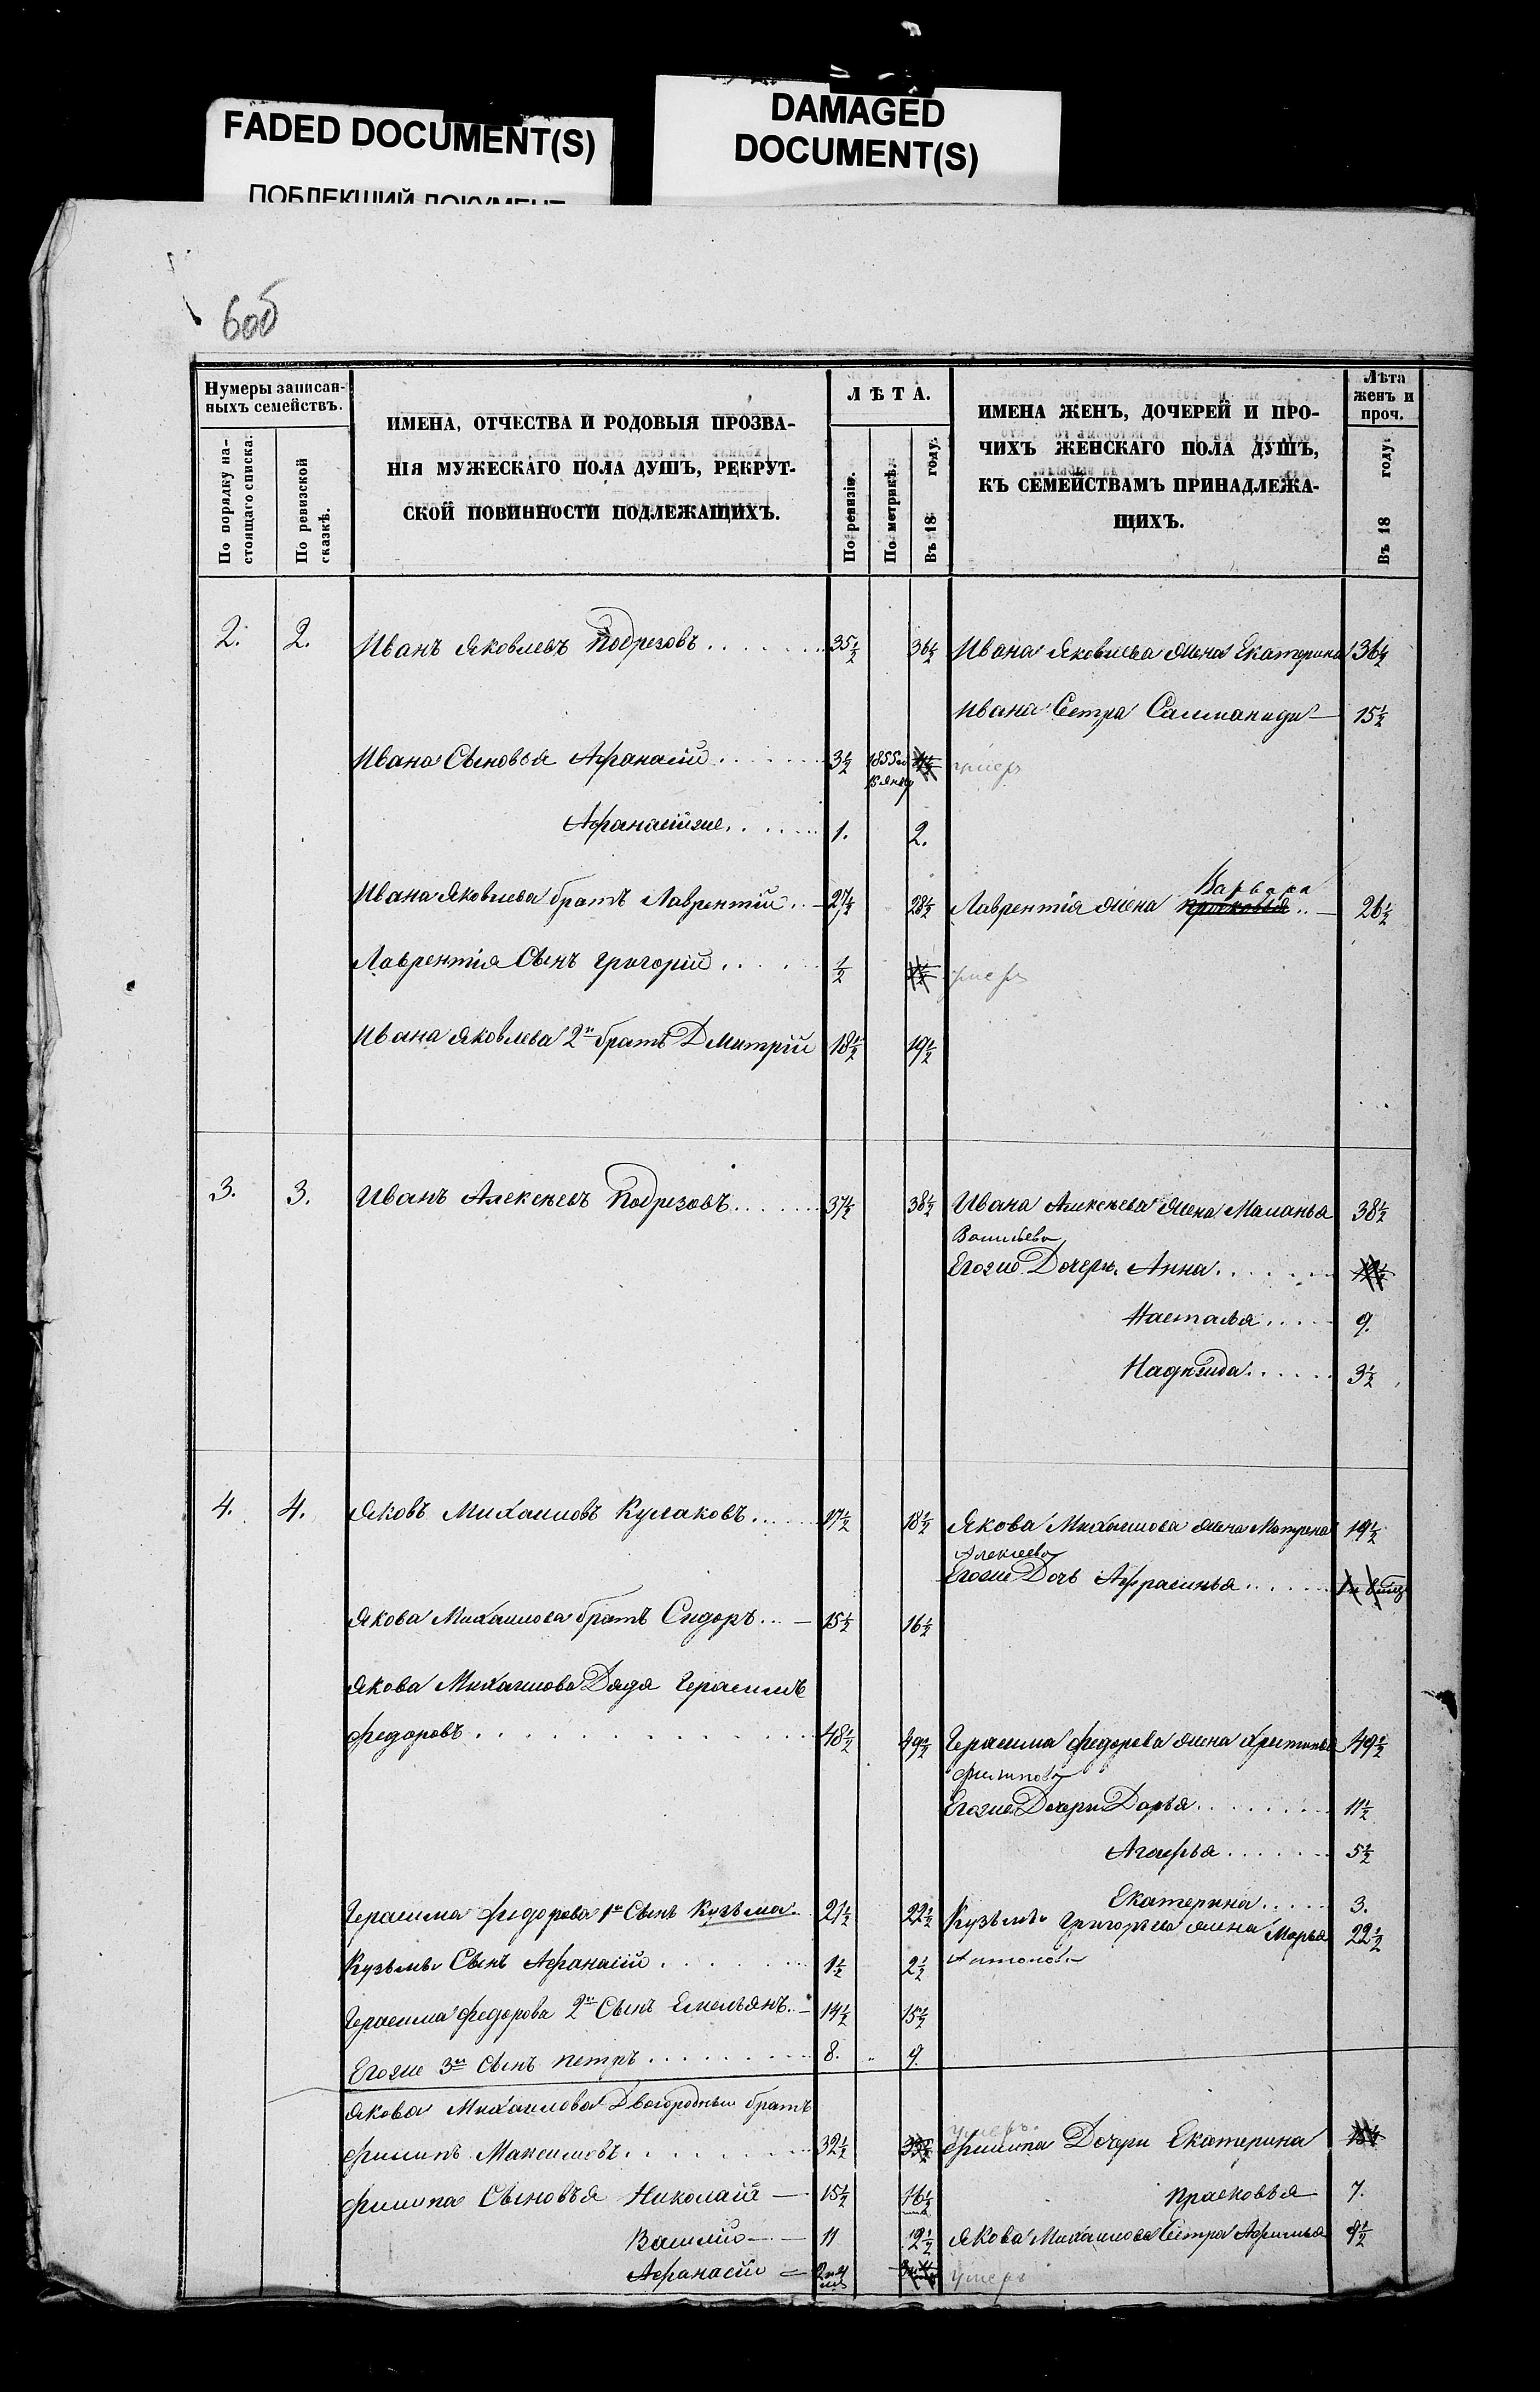 FADED DOCUMENT(S)
ПОБЛЕКШИЙ ДОКУМЕНТ
DAMAGED
DOCUMENT(S)
606
Нумеры записан-
ныхъ семействъ.
По порядку на-
стоящаго списка.
По ревизской
сказкѣ.
ИМЕНА, ОТЧЕСТВА И РОДОВЫЯ ПРОЗВА-
НІЯ МУЖЕСКАГО ПОЛА ДУШЪ, РЕКРУТ-
СКОЙ ПОВИННОСТИ ПОДЛЕЖАЩИХЪ.
ЛѢТА.
По ревизіи.
По метрикѣ.
Въ 18 году.
ИМЕНА ЖЕНЪ, ДОЧЕРЕЙ И ПРО-
ЧИХЪ ЖЕНСКАГО ПОЛА ДУШЪ,
КЪ СЕМЕЙСТВАМЪ ПРИНАДЛЕЖА-
ЩИХЪ.
Лѣта
женъ и
проч.
Въ 18 году.
2. 2. Иванъ Яковлевъ Подрезовъ 35½ 36½ Ивана Яковлева жена Екатерина 36½
Ивана Сестра 15½
Ивана Сыновья Афанасій 3½ умеръ
1. 2.
Варвара
Ивана Яковлева братъ Лаврентій 27½ 28½ Лаврентія жена Прасковья 26½
Лаврентія Сынъ Григорій ½ умеръ
Ивана Яковлева 2й братъ Дмитрій 18½ 19½
3. 3. Иванъ Алексѣевъ Подрезовъ 37½ 38½ Ивана Алексѣева жена Маланья 38½
Васильева
Егоже Дочери Анна
Насталья 9.
Надѣжда 3½
4. 4. Яковъ Михаиловъ Кулаковъ 17½ 18½ Якова Михаилова жена Матрена 19½
Алексеева
Егоже Дочь Афросинья
Якова Михаилова братъ Сидоръ 15½ 16½
Якова Михаилова Дядя Герасимъ
Федоровъ 48½ 49½ Герасима Федорова жена 49½
Филипова
Егоже Дочери Дарья 11½
Агафья 5½
Екатерина 3.
Герасима Федорова 1й Сынъ Кузьма 21½ 22½ Кузьмы жена Марья 22½
Антонова
Кузьмы Сынъ Афанасій 1½ 2½
Герасима Федорова 2й Сынъ Емельянъ 14½ 15½
Егоже 3й Сынъ Петръ 8. 9.
Якова Михаилова Двоюродный братъ
умеръ
Филипъ Максимовъ 32½ 33½ Филипа Дочери Екатерина
Филипа Сыновья Николай 15½ 16½ Прасковья 7.
Василий 11 12½ Якова Михаилова Сестра Афимья 9½
Афанасій умеръ